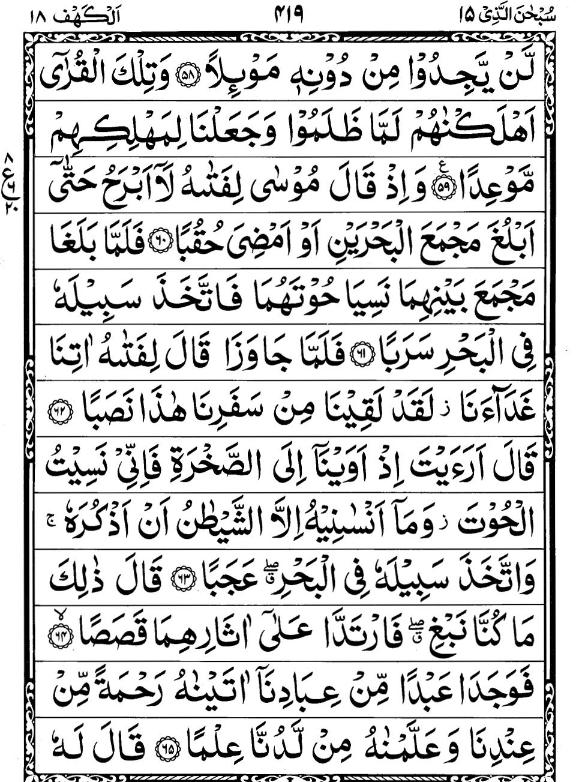 سُبْحٰنَ الَّذِیْۤ ۱۵ ۴۱۹ اَلْكَهْف ۱۸
لَّنْ یَّجِدُوْا مِنْ دُوْنِهٖ مَوْىِٕلًا ﴿۵۸﴾ وَتِلْكَ الْقُرٰۤی
اَهْلَكْنٰهُمْ لَمَّا ظَلَمُوْا وَجَعَلْنَا لِمَهْلِكِهِمْ
مَّوْعِدًا ﴿۵۹﴾ ع وَاِذْ قَالَ مُوْسٰی لِفَتٰىهُ لَاۤ اَبْرَحُ حَتّٰۤی
۸ ع ۶ ۲۰
اَبْلُغَ مَجْمَعَ الْبَحْرَیْنِ اَوْ اَمْضِیَ حُقُبًا ﴿۶۰﴾ فَلَمَّا بَلَغَا
مَجْمَعَ بَیْنِهِمَا نَسِیَا حُوْتَهُمَا فَاتَّخَذَ سَبِیْلَهٗ
فِی الْبَحْرِ سَرَبًا ﴿۶۱﴾ فَلَمَّا جَاوَزَا قَالَ لِفَتٰىهُ اٰتِنَا
غَدَآءَنَا ز لَقَدْ لَقِیْنَا مِنْ سَفَرِنَا هٰذَا نَصَبًا ﴿۶۲﴾
قَالَ اَرَءَیْتَ اِذْ اَوَیْنَاۤ اِلَی الصَّخْرَةِ فَاِنِّیْ نَسِیْتُ
الْحُوْتَ ز وَمَاۤ اَنْسٰنِیْهُ اِلَّا الشَّیْطٰنُ اَنْ اَذْكُرَهٗ ج
وَاتَّخَذَ سَبِیْلَهٗ فِی الْبَحْرِ ۖق عَجَبًا ﴿۶۳﴾ قَالَ ذٰلِكَ
مَا كُنَّا نَبْغِ ۖق فَارْتَدَّا عَلٰۤی اٰثَارِهِمَا قَصَصًا ﴿۶۴﴾ لا
فَوَجَدَا عَبْدًا مِّنْ عِبَادِنَاۤ اٰتَیْنٰهُ رَحْمَةً مِّنْ
عِنْدِنَا وَعَلَّمْنٰهُ مِنْ لَّدُنَّا عِلْمًا ﴿۶۵﴾ قَالَ لَهٗ